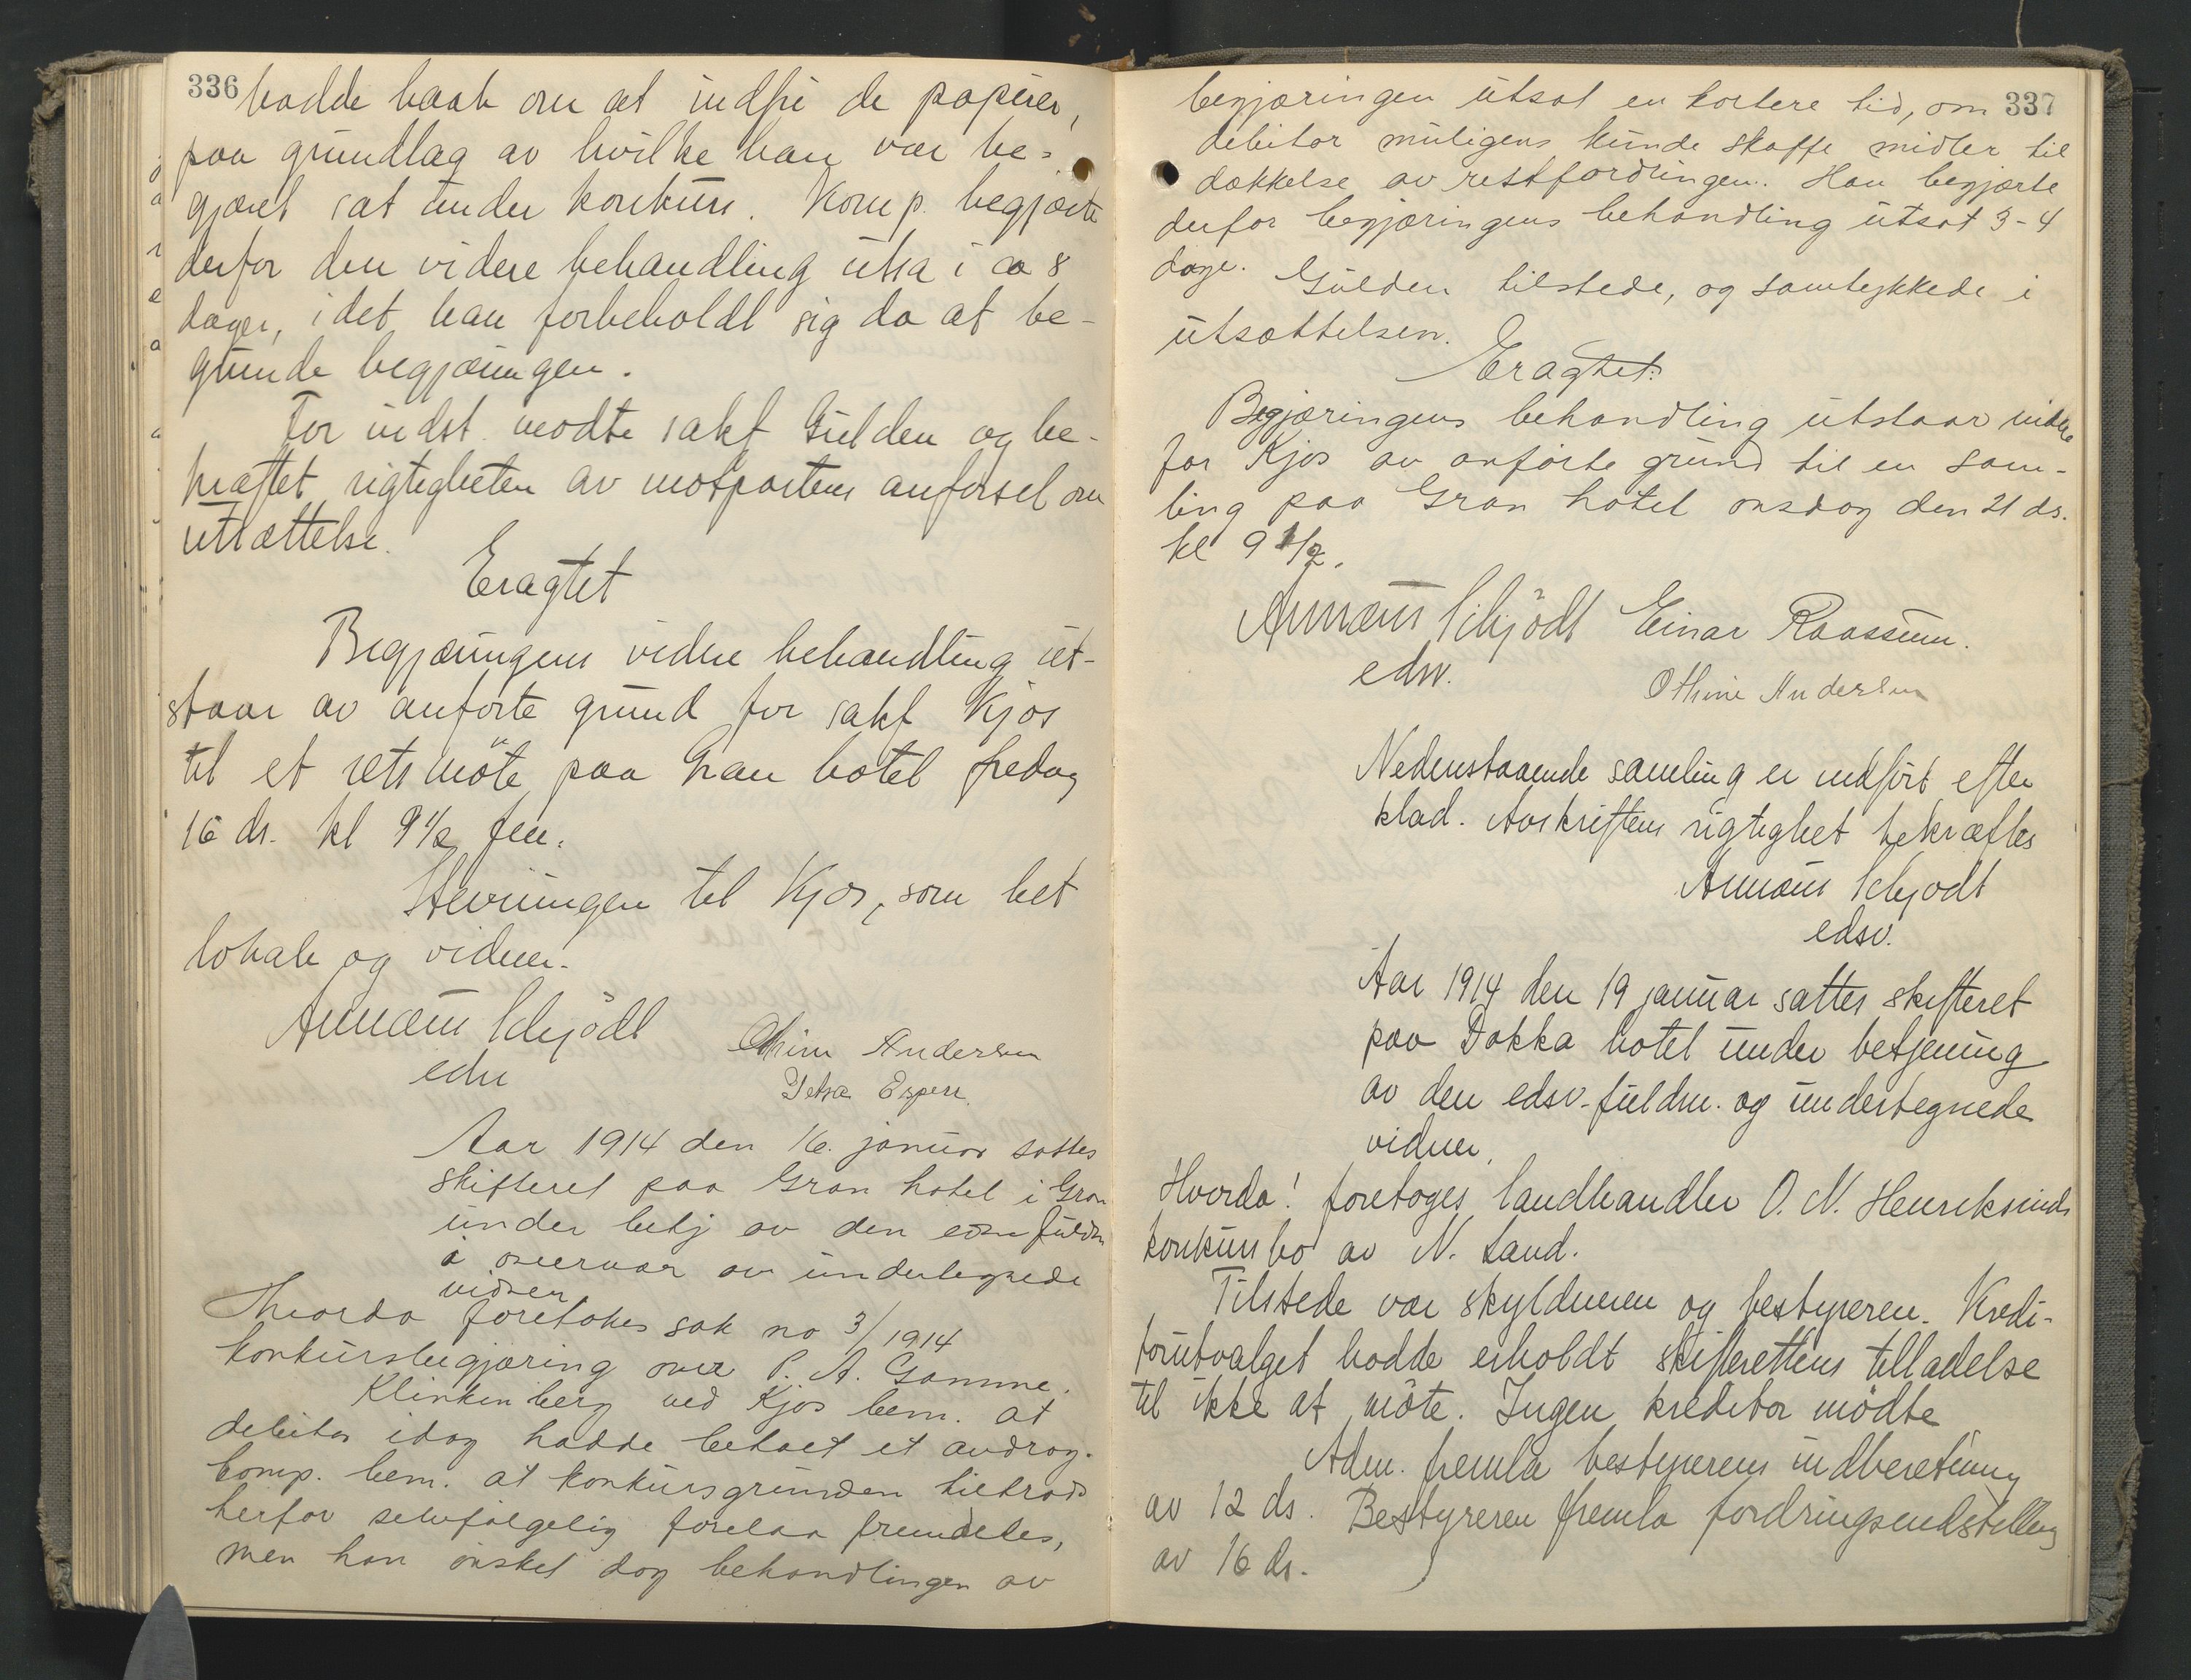 336
hadde haab om at indfri de papirer,
paa grundlag av hvilke han var be-
gjæret sat under konkurs. Komp. begjærte
derfor den videre behandling utsa i ca 8
dager, idet han forbeholdt sig da at be-
grunde begjæringen.
For indst. mødte sakf Gulden og be-
kræftet rigtigheten av motpartens anførsel om
utsættelse.
Eragtet
Begjæringens videre behandling ut-
staar av anførte grund for sakf Kjos
til et retsmöte paa Gran hotel fredag
16 ds. kl 9 1/2 fm.
til Kjos, som bet
lokale og vidner.
Schjödt
edsv
Othine Andersen
Petra Espen.
Aar 1914 den 16. januar sattes
skifteret paa Gran hotel i Gran
under betj av den edsv fuldm
i overvær av undertegnede
vidner
Hvorda foretokes sak no 3/1914
konkursbegjæring over P. A. Gamme.
Klinkenberg ved Kjos bem. at
debitor idag hadde betalt et avdrag.
Komp. bem. at konkursgrunden tiltrods
herfor selvfölgelig forelaa fremdeles,
men han önsket dog behandlingen av
337
begjæringen utsat en kortere tid, om
debitor muligens kunde skaffe midler til
dækkelse av restfordringen. Han begjærte
derfor begjæringens behandling utsat 3-4
dage.
Gulden tilstede, og samtykkede i
utsættelsen.
Eragtet:
Begjæringens behandling utstaar videre
for Kjos av anförte grund til en sam-
ling paa Gran hotel onsdag den 21 ds.
kl 9 1/2.
Schjödt Einar Raassum.
edsv.
Othine Andersen
Nedenstaaende samling er indført efter
klad. Avskriftens rigtighet bekræftes
Schjødt
edsv.
Aar 1914 den 19 januar sattes skifteret
paa Dokka hotel under betjening
av den edsv. fuldm. og undertegnede
vidner.
Hvorda! foretoges landhandler O. N. Henriksens
konkursbo av N. Land.
Tilstede var skyldneren og bestyreren. Kredi-
torutvalget hadde erholdt skifterettens tilladelse
til ikke at möte. Ingen kreditor mödte
Adm. fremla bestyrerens indberetning
av 12 ds. Bestyreren fremla fordringsudstilling
av 16 ds.